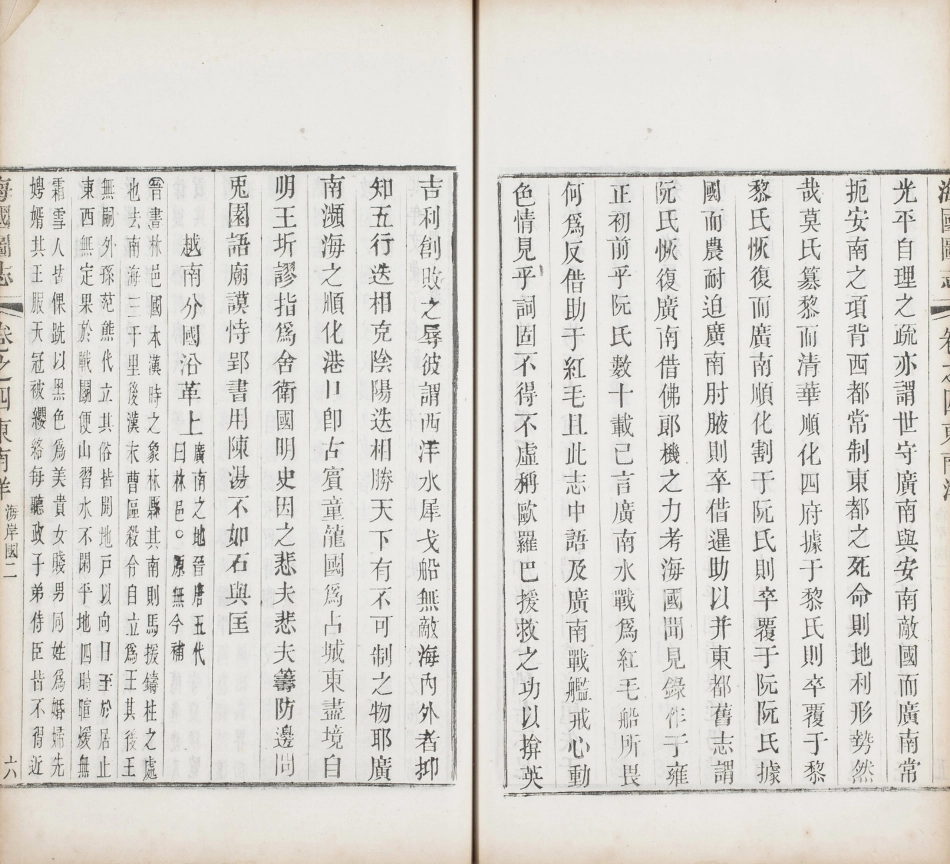 海國圖志 卷之四東南洋
光平自理之疏亦謂世守廣南與安南敵國而廣南常
扼安南之項背西都常制東都之死命則地利形勢然
哉莫氏簒黎而清華順化四府據于黎氏則卒覆于黎
黎氏恢復而廣南順化割于阮氏則卒覆于阮阮氏據
國而農耐迫廣南肘腋則卒借暹助以并東都舊志謂
阮氏恢復廣南借佛郎機之力考海國聞見錄作于雍
正初前乎阮氏數十載已言廣南水戰爲紅毛船所畏
何爲反借助于紅毛且此志中語及廣南戰艦戒心動
色情見乎詞固不得不虛稱歐羅巴援救之功以揜英
吉利創敗之辱彼謂西洋水犀戈船無敵海內外者抑
知五行迭相克陰陽迭相勝天下有不可制之物耶廣
南瀕海之順化港口卽古賓童龍國爲占城東盡境自
明王圻謬指爲舍衛國明史因之悲夫悲夫籌防邊問
兎園語廟謨恃郢書用陳湯不如石與匡
越南分國沿革上 廣南之地晉唐五代
曰林邑○原無今補
晉書林邑國本漢時之象林縣其南則馬援鑄柱之處
也去南海三千里後漢末曹區殺令自立爲王其後王
無嗣外孫范熊代立其俗皆開地戶以向日至於居止
東西無定果於戰鬭便山習水不閑平地四時暄煖無
霜雪人皆倮跣以黑色爲美貴女賤男同姓爲婚婦先
娉婿其王服天冠被纓絡每聽政子弟侍臣皆不得近
海國圖志 卷之四東南洋 海岸國二 六